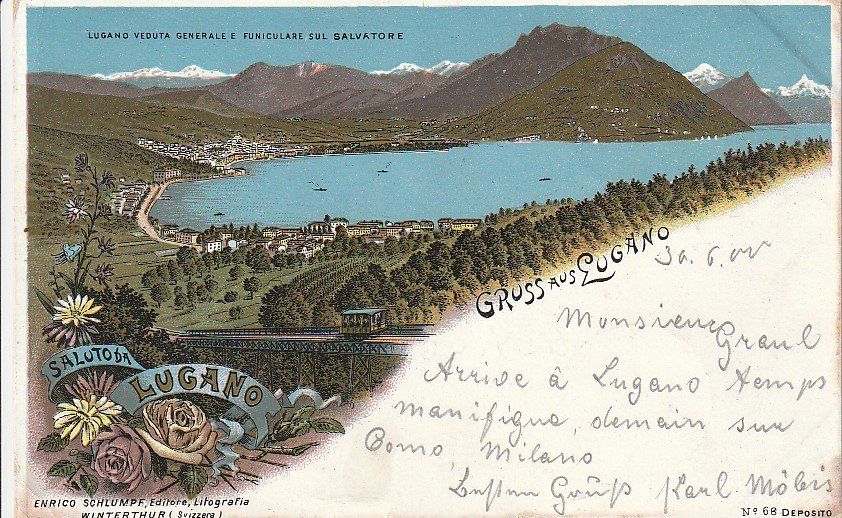 LUGANO VEDUTA GENERALE E FUNICULARE SUL SALVATORE
GRUSS AUS LUGANO
30.6.00
Monsieur Graul
Arrive à Lugano temps
manifique, demain sur
Como, Milano
Besten Grüß Karl Möbis
SALUTO DA
LUGANO
ENRICO SCHLUMPF, Editore, Litografia
WINTERTHUR (Svizzera)
Nº 68 DEPOSITO